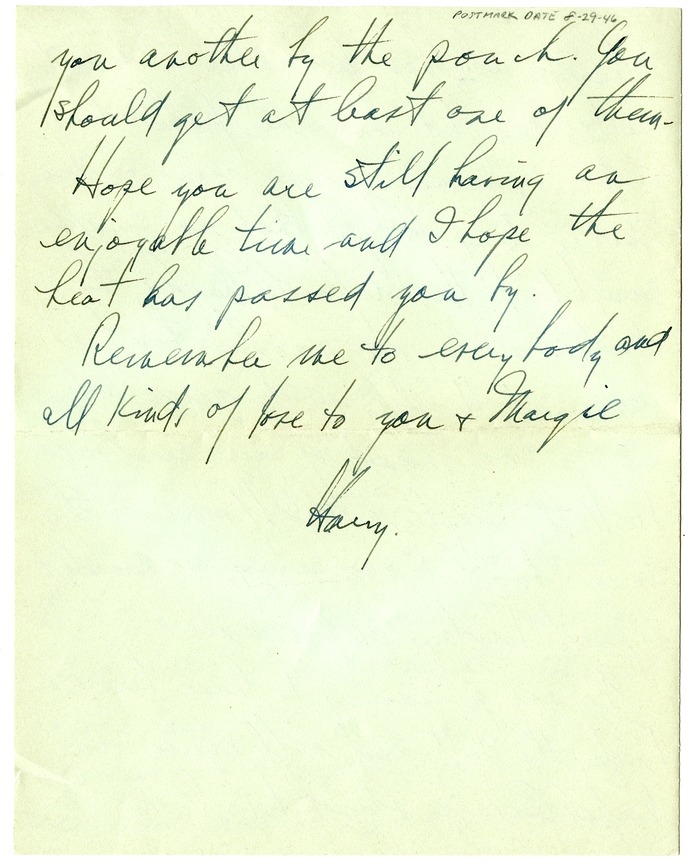 POSTMARK DATE 8-29-46
you another by the pouch. You
should get at least one of them.
Hope you are still having an
enjoyable time and I hope the
heat has passed you by.
Remember me to everybody and
all kinds of love to you + Margie
Harry.